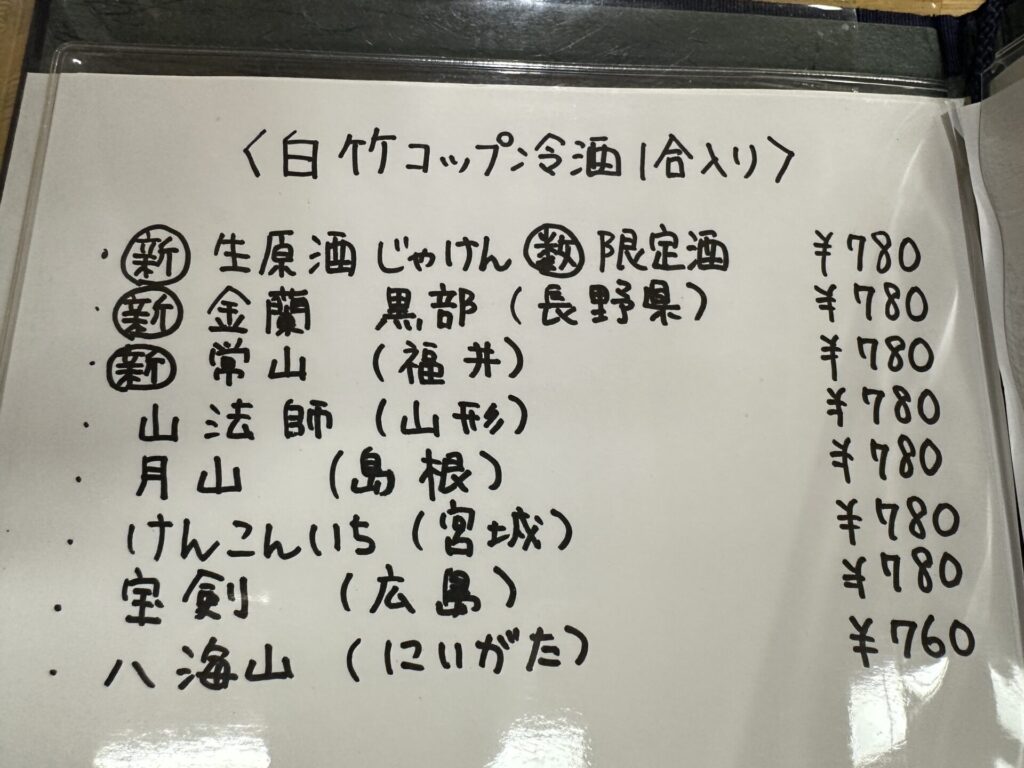 〈白竹コップ冷酒1合入り〉
・㊟新 生原酒じゃけん 数 限定酒 ¥780
新 金蘭 黒部(長野県) ¥780
・新 常山(福井) ¥780
・山法師(山形) ¥780
・月山(島根) ¥780
・けんこんいち(宮城) ¥780
・宝剣(広島) ¥780
・八海山(にいがた) ¥760